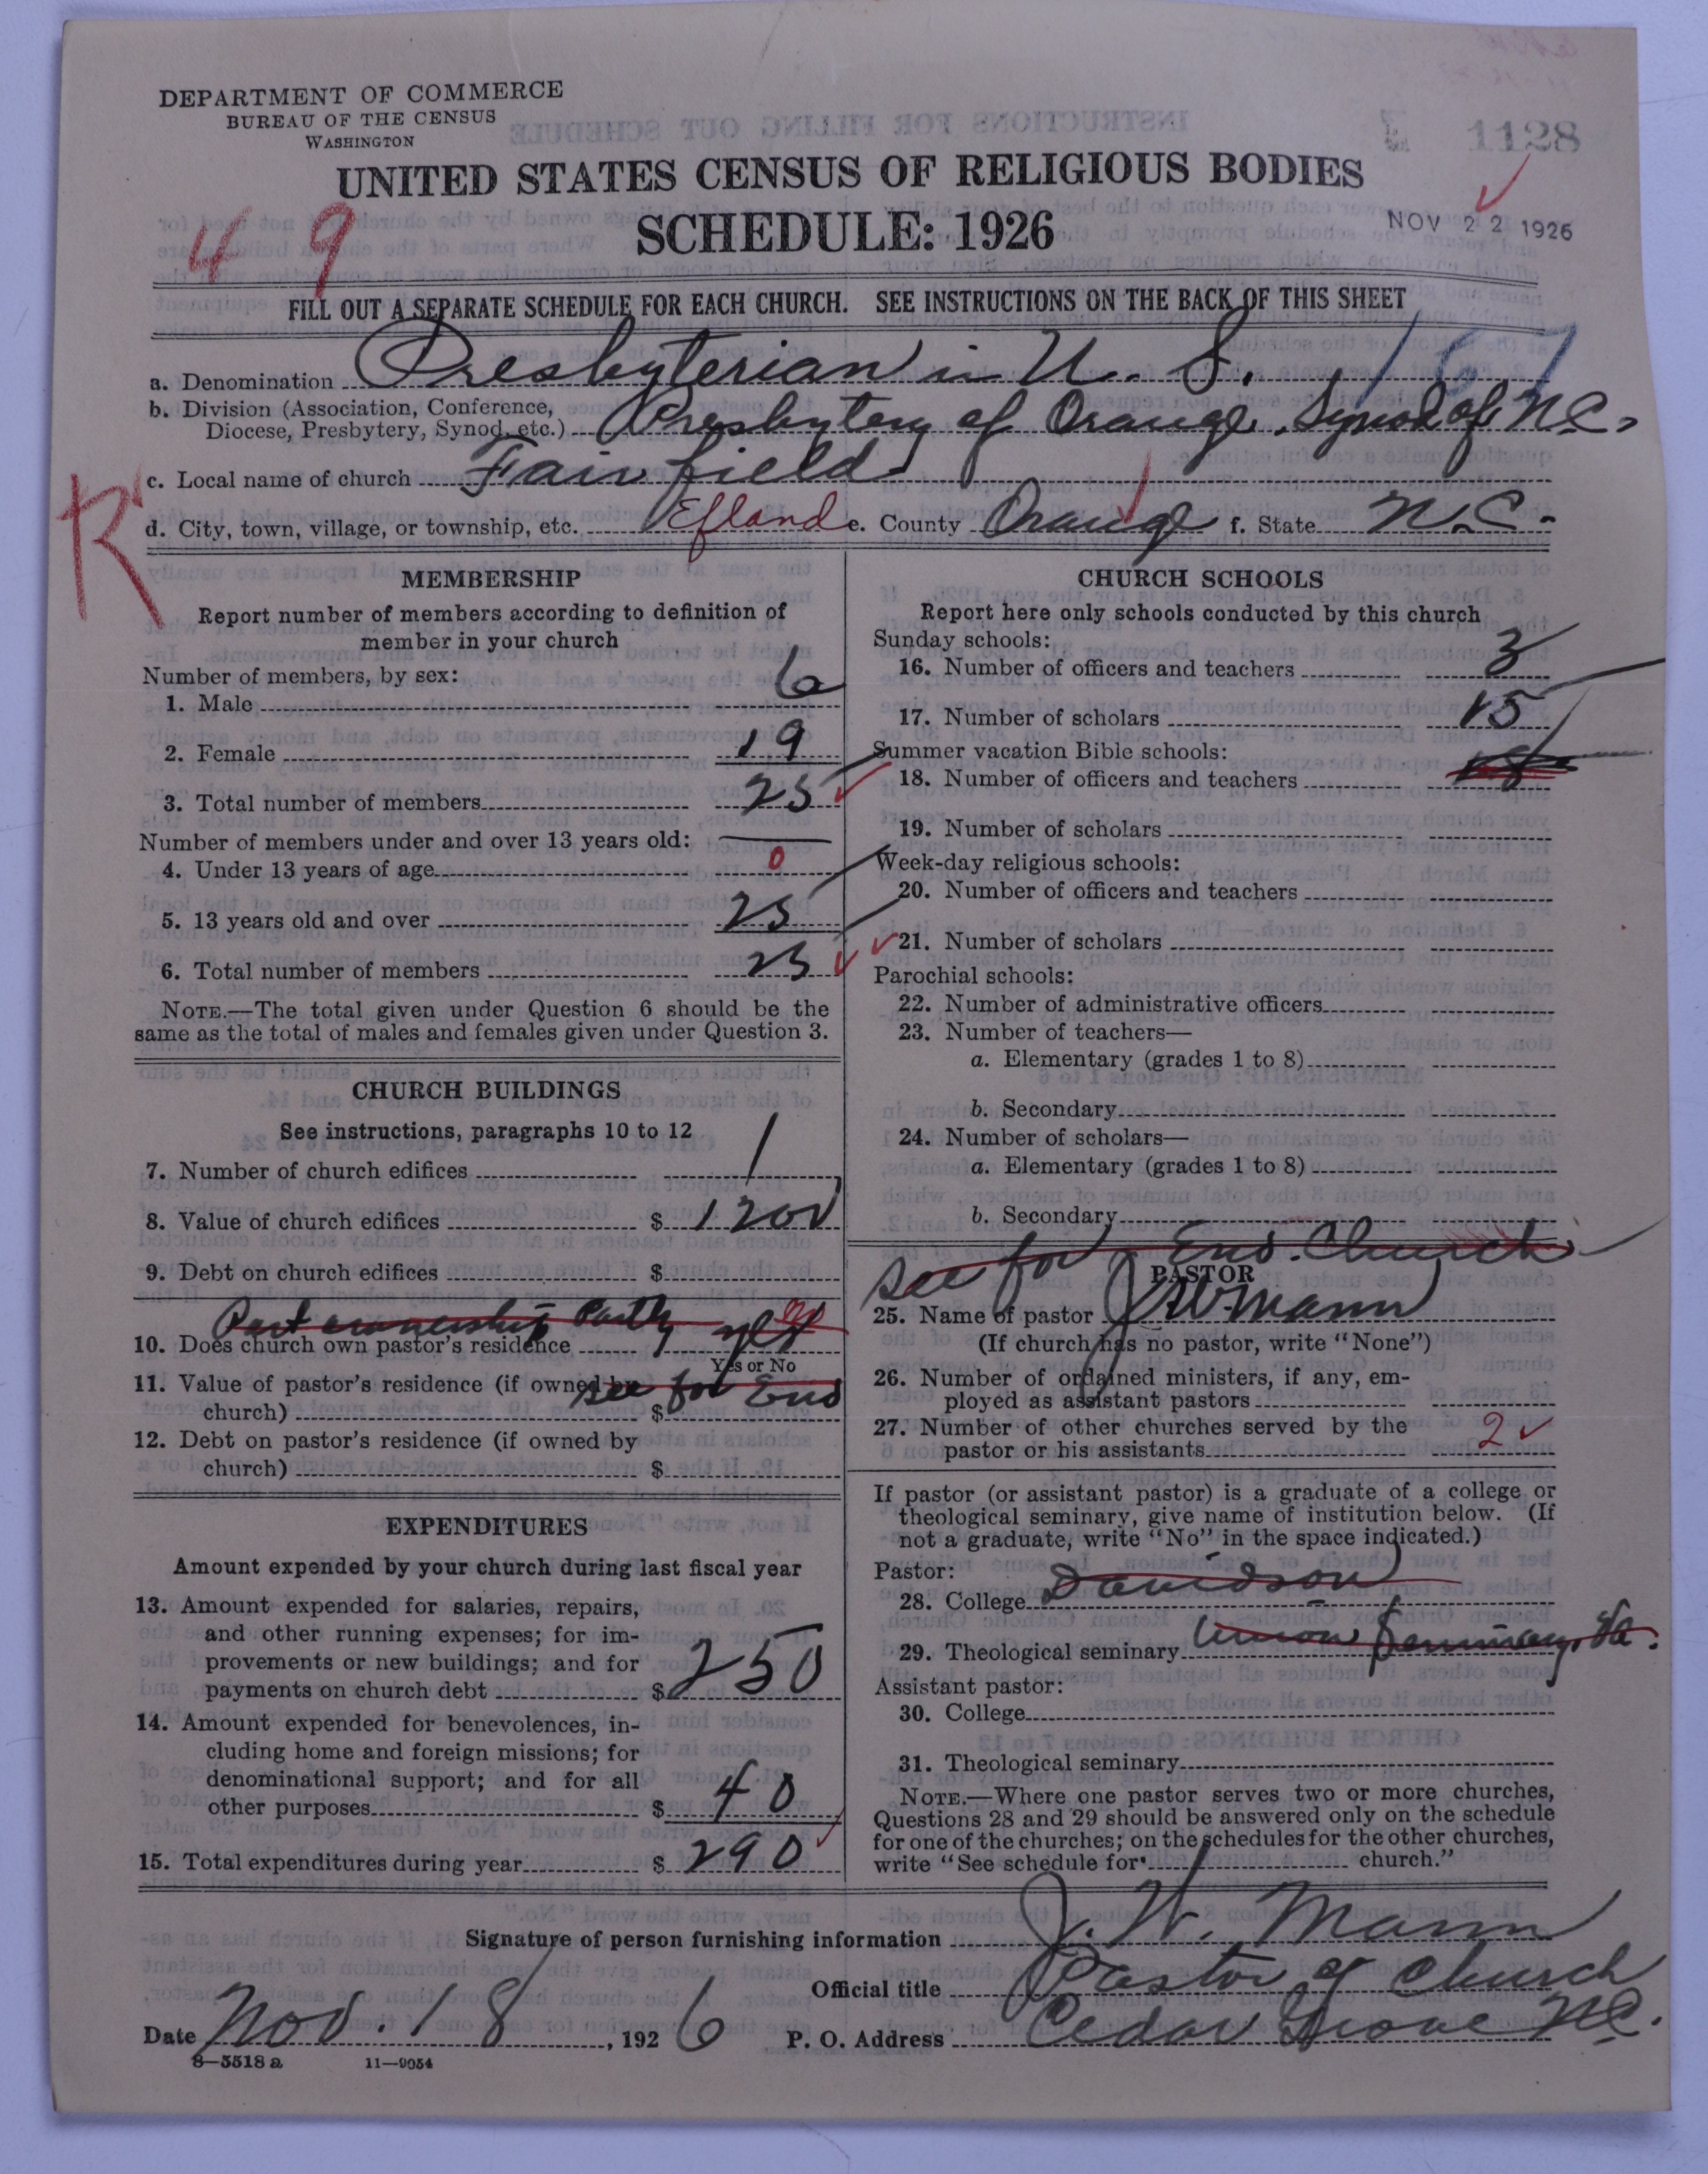 DEPARTMENT OF COMMERCE
BUREAU OF THE CENSUS
WASHINGTON
1128
UNITED STATES CENSUS OF RELIGIOUS BODIES
SCHEDULE: 1926
NOV 22 1926
49
FILL OUT A SEPARATE SCHEDULE FOR EACH CHURCH. SEE INSTRUCTIONS ON THE BACK OF THIS SHEET
167
a. Denomination Presbyterian in U. S.
b. Division (Association, Conference,
Diocese, Presbytery, Synod, etc.) Presbytery of Orange, Synod of N.C.
c. Local name of church Fairfield
R
d. City, town, village, or township, etc. Efland e. County Orange f. State N.C.
MEMBERSHIP
Report number of members according to definition of
member in your church
Number of members, by sex:
1. Male 6
2. Female 19
3. Total number of members 25
Number of members under and over 13 years old:
4. Under 13 years of age 0
5. 13 years old and over 25
6. Total number of members 25
NOTE.—The total given under Question 6 should be the
same as the total of males and females given under Question 3.
CHURCH BUILDINGS
See instructions, paragraphs 10 to 12
7. Number of church edifices 1
8. Value of church edifices $ 1200
9. Debt on church edifices $
Part ownership Partly yes no
10. Does church own pastor's residence
Yes or No
11. Value of pastor's residence (if owned by see for Eno
church) $
12. Debt on pastor's residence (if owned by
church) $
EXPENDITURES
Amount expended by your church during last fiscal year
13. Amount expended for salaries, repairs,
and other running expenses; for im-
provements or new buildings; and for
payments on church debt $ 250
14. Amount expended for benevolences, in-
cluding home and foreign missions; for
denominational support; and for all
other purposes $ 40
15. Total expenditures during year $ 290
CHURCH SCHOOLS
Report here only schools conducted by this church
Sunday schools:
16. Number of officers and teachers 3
17. Number of scholars 15
Summer vacation Bible schools:
18. Number of officers and teachers
19. Number of scholars
Week-day religious schools:
20. Number of officers and teachers
21. Number of scholars
Parochial schools:
22. Number of administrative officers
23. Number of teachers—
a. Elementary (grades 1 to 8)
b. Secondary
24. Number of scholars—
a. Elementary (grades 1 to 8)
b. Secondary
see for Eno. Church
PASTOR
25. Name of pastor J W. Mann
(If church has no pastor, write "None")
26. Number of ordained ministers, if any, em-
ployed as assistant pastors
27. Number of other churches served by the
pastor or his assistants 2
If pastor (or assistant pastor) is a graduate of a college or
theological seminary, give name of institution below. (If
not a graduate, write "No" in the space indicated.)
Pastor:
28. College Davidson
29. Theological seminary Union Seminary, Va.
Assistant pastor:
30. College
31. Theological seminary
NOTE.—Where one pastor serves two or more churches,
Questions 28 and 29 should be answered only on the schedule
for one of the churches; on the schedules for the other churches,
write "See schedule for church."
Signature of person furnishing information J. W. Mann
Official title Pastor of Church
Date Nov. 18, 1926 P. O. Address Cedar Grove N.C.
8—5518 a 11—9054